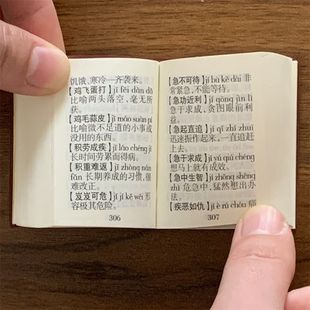 饥饿、寒冷一齐袭来。
【鸡飞蛋打】jī fēi dàn dǎ
比喻两头落空,毫无所
获。
【鸡毛蒜皮】jī máo suàn pí
比喻微不足道的小事或
没用的东西。
【积劳成疾】jī láo chéng jí
长时间劳累而得病。
【积重难返】jī zhòng nán
fǎn 长期养成的习惯,很
难改正。
【岌岌可危】jí jí kě wēi 形
容极其危险。
306
【急不可待】jí bù kě dài 非
常紧急,不能等待。
【急功近利】jí gōng jìn lì
急于求成,贪图眼前利
益。
【急起直追】jí qǐ zhí zhuī
迅速振作起来,一直追赶
上去。
【急于求成】jí yú qiú chéng
想马上就有成效。
【急中生智】jí zhōng shēng
zhì 危急中,猛然想出办
法。
【疾恶如仇】jí è rú chóu
307